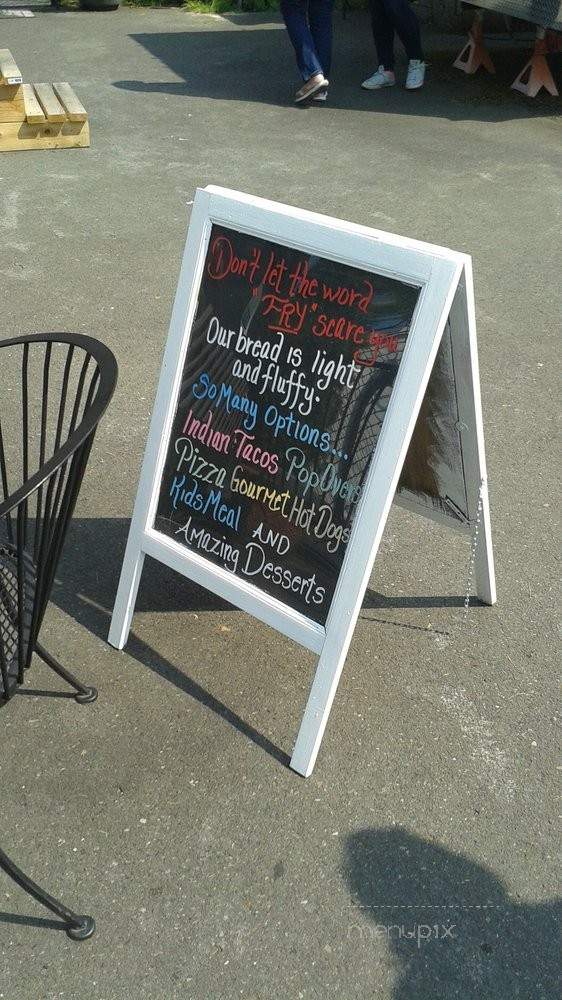 Don't let the word
"FRY" scare you
Our bread is light
and fluffy.
So Many Options...
Indian Tacos Pop Overs
Pizza Gourmet Hot Dogs
Kids Meal AND
Amazing Desserts
menupix